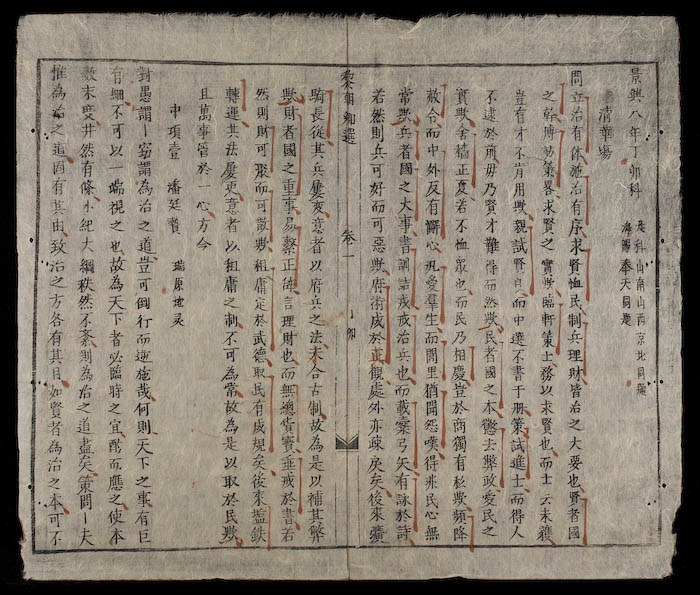 景興八年丁卯科
是科山南山西京北同題
海陽奉天同題
清華塲
問立治有体施治有序求賢恤民制兵理財皆治之大要也賢者國
之幹博易策畧求賢之實歟臨軒策士務以求賢也而士云未獲
豈有才不肯用歟親試賢良而中選不書于册策試進士而得人
不逮於刑毋乃賢才難得而然歟民者國之本懲去弊政愛民之
實歟舍穡正夏若不恤眾也而民乃相慶豈於商獨有私歟頻降
赦合而中外反有懈心汎愛羣生而閭里猶聞怨嘆得非民心無
常歟兵者國之大事書訓詰戎戒治兵也而載櫜弓矢有詠於詩
若然則兵可好而可惡歟府衛成於貞觀處外亦疎戾矣後來彍
黎朝鄉選 卷一
騎長從其兵屢変意者以府兵之法未合古制故為是以補其弊
歟財者國之重事易繫正德言理財也而無總貨寶垂戒於書若
然則財可聚而可散歟租庸定於武德取民有成規矣後來塩鉄
轉運其法屢更意者以租庸之制不可為常故為是以取於民歟
且萬事管於一心方今
中項壹 潘廷賛 瑞原地灵
對愚謂〻窃謂為治之道豈可倒行而逆施哉何則天下之事有巨
有細不可以一端視之也故為天下者必臨時之宜酌而應之使本
数末度井然有條小紀大綱秩然不紊則為治之道盡矣策問〻夫
惟為治之道固有其由致治之方各有其目如賢者為治之本可不